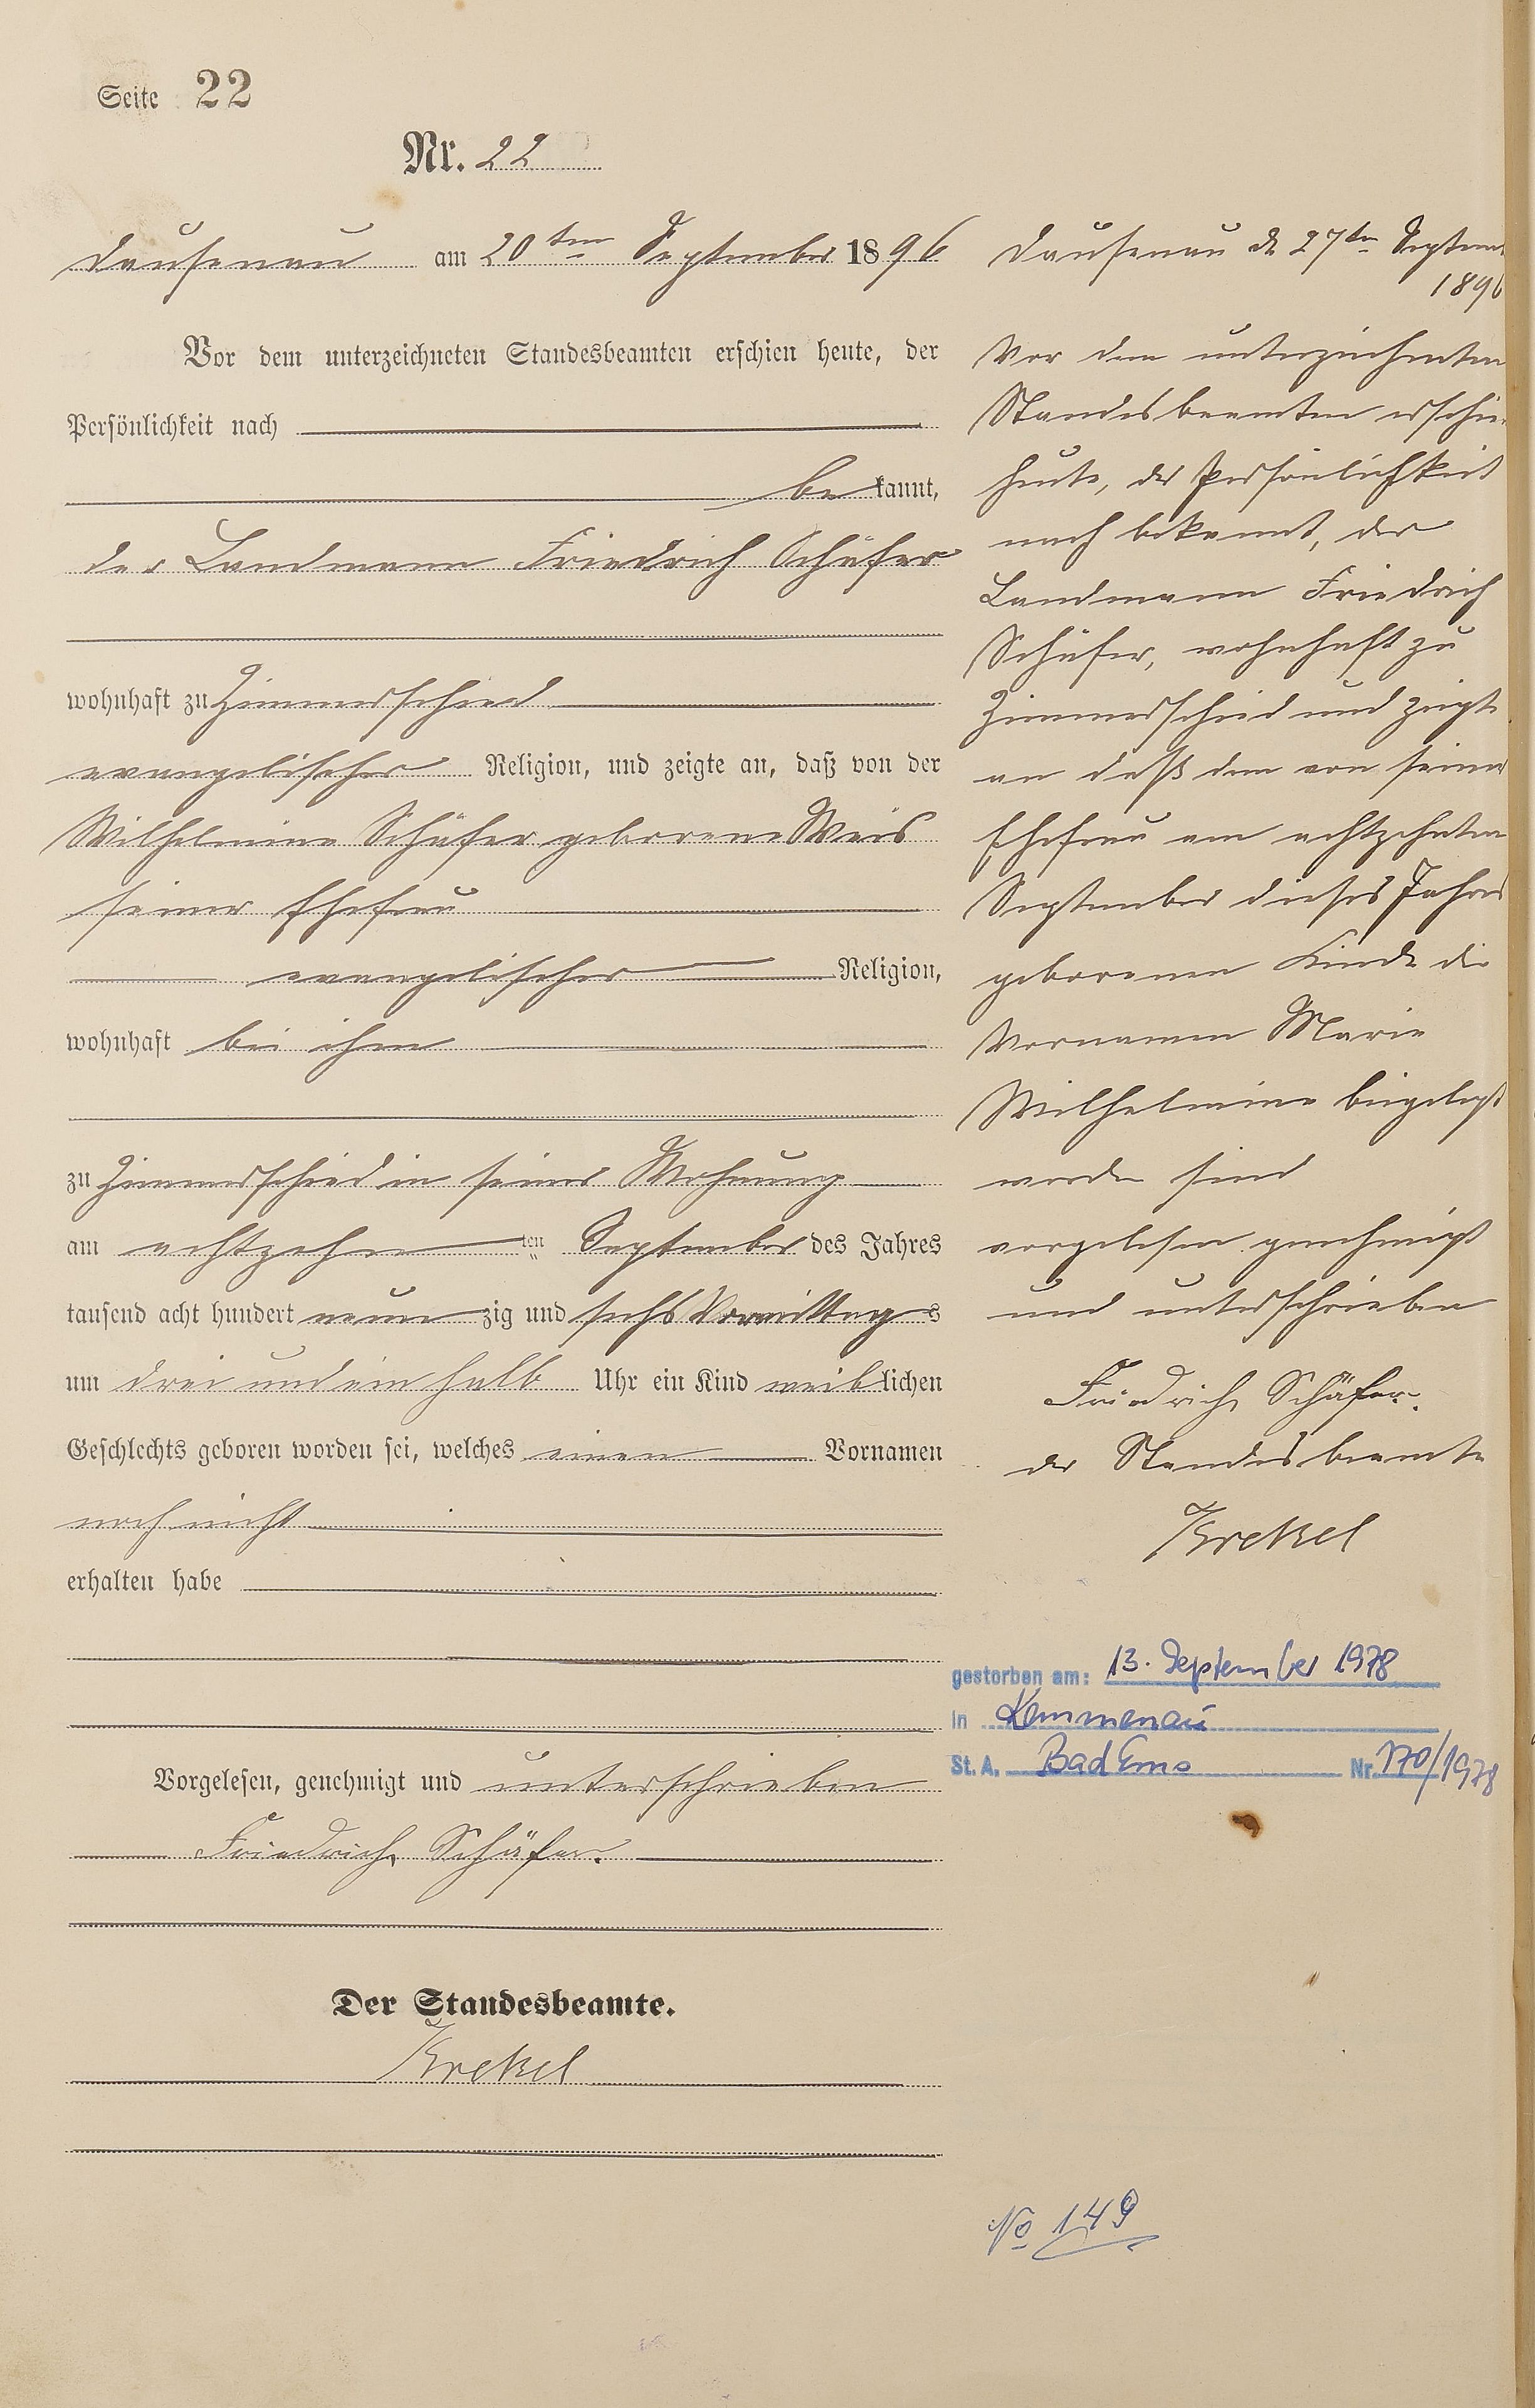 Seite 22
Nr. 22
Dausenau am 20ten September 1896
Vor dem unterzeichneten Standesbeamten erschien heute, der
Persönlichkeit nach
be kannt,
der Landmann Friedrich Schäfer
wohnhaft zu Zimmerschied
evangelischer Religion, und zeigte an, daß von der
Wilhelmine Schäfer geborene Weis
seiner Ehefrau
evangelischer Religion,
wohnhaft bei ihm
zu Zimmerschied in seiner Wohnung
am achtzehn ten September des Jahres
tausend acht hundert neun zig und sechs Vormittags
um drei und ein halb Uhr ein Kind weiblichen
Geschlechts geboren worden sei, welches einen Vornamen
noch nicht
erhalten habe
Vorgelesen, genehmigt und unterschrieben
Friedrich Schäfer.
Der Standesbeamte.
Krekel
Dausenau d 27ten Septem
1896
Vor dem unterzeichneten
Standesbeamten erschien
heute, der Persönlichkeit
nach bekannt, der
Landmann Friedrich
Schäfer, wohnhaft zu
Zimmerschied und zeigte
an daß dem von seiner
Ehefrau am achtzehnten
September dieses Jahres
geborenen Kinde die
Vornamen Marie
Wilhelmine beigelegt
worden sind
vorgelesen genehmigt
und unterschrieben
Friedrich Schäfer.
der Standesbeamte
Krekel
gestorben am: 13. September 1978
in Kemmenau
St. A. Bad Ems Nr. 170/1978
No 149